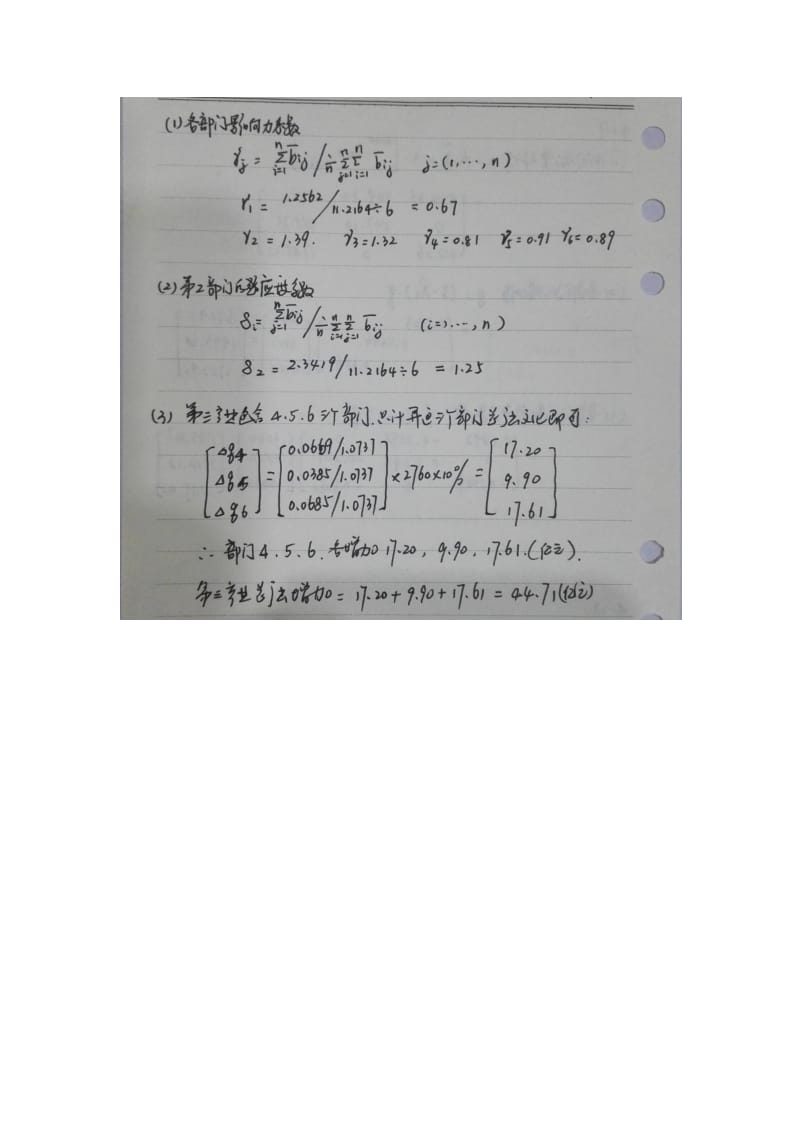 (1) 各部门影响力系数
γj = Σ(i=1→n) b̄ij / (1/n) Σ(j=1→n) Σ(i=1→n) b̄ij j=(1,…,n)
γ1 = 1.2562 / 11.2164÷6 = 0.67
γ2 = 1.39. γ3=1.32 γ4=0.81 γ5=0.91 γ6=0.89
(2) 第2部门的感应度系数
δi = Σ(j=1→n) b̄ij / (1/n) Σ(i=1→n) Σ(j=1→n) b̄ij (i=1,…,n)
δ2 = 2.3419 / 11.2164÷6 = 1.25
(3) 第三产业包含4.5.6三个部门,只计算这三个部门总产出变化即可:
[Δq4] = [0.0669/1.0737] ×2760×10% = [17.20]
[Δq5] [0.0385/1.0737] [9.90]
[Δq6] [0.0685/1.0737] [17.61]
∴ 部门4.5.6.各增加17.20, 9.90, 17.61.(亿元).
第三产业总产出增加 = 17.20+9.90+17.61 = 44.71(亿元)